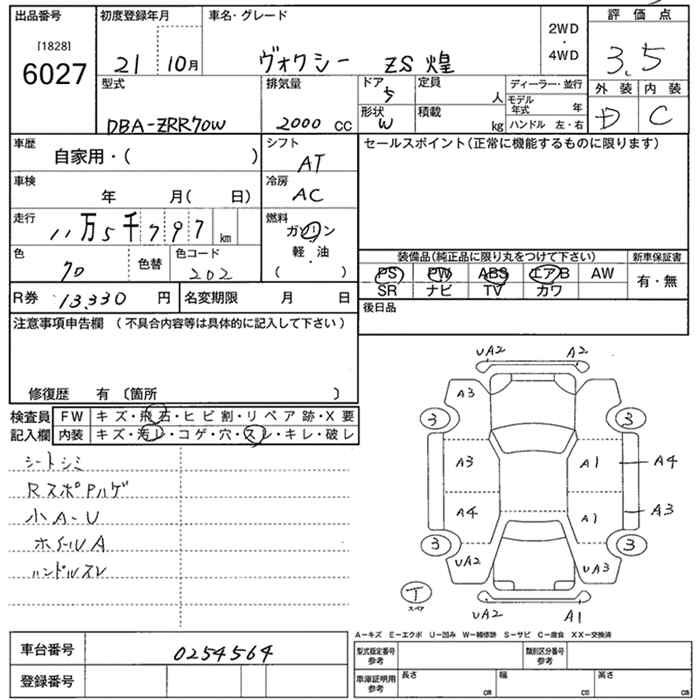 出品番号
[1828]
6027
初度登録年月
21 10月
車名・グレード
ヴォクシー ZS 煌
2WD
・
4WD
評価点
3.5
外装 内装
D C
型式
DBA-ZRR70W
排気量
2000 cc
ドア
5
形状
W
定員
人
積載
kg
ディーラー・並行
モデル年式 年
ハンドル 左・右
車歴
自家用・( )
シフト
AT
車検
年 月( 日)
冷房
AC
走行
11万5千797 km
燃料
ガソリン
軽・油
( )
色
70
色替
色コード
202
R券 13,330 円
名変期限 月 日
セールスポイント(正常に機能するものに限ります)
装備品(純正品に限り丸をつけて下さい)
新車保証書
PS PW ABS エアB AW
SR ナビ TV カワ
有・無
後日品
注意事項申告欄 (不具合内容等は具体的に記入して下さい)
修復歴 有 〔箇所 〕
検査員記入欄
FW キズ・飛石・ヒビ割・リペア跡・X要
内装 キズ・汚レ・コゲ・穴・スレ・キレ・破レ
シートシミ
RスポPハゲ
小A-U
ホイールA
ハンドルスレ
UA2 A2
A3
3 3
A3 A1 A4
A4 A1 A3
3 3
UA2 UA3
T
スペア
UA2 A1
A-キズ E-エクボ U-凹み W-補修跡 S-サビ C-腐食 XX-交換済
車台番号 0254564
登録番号
型式指定番号参考
類別区分番号参考
車庫証明用参考
長さ cm
幅 cm
高さ cm